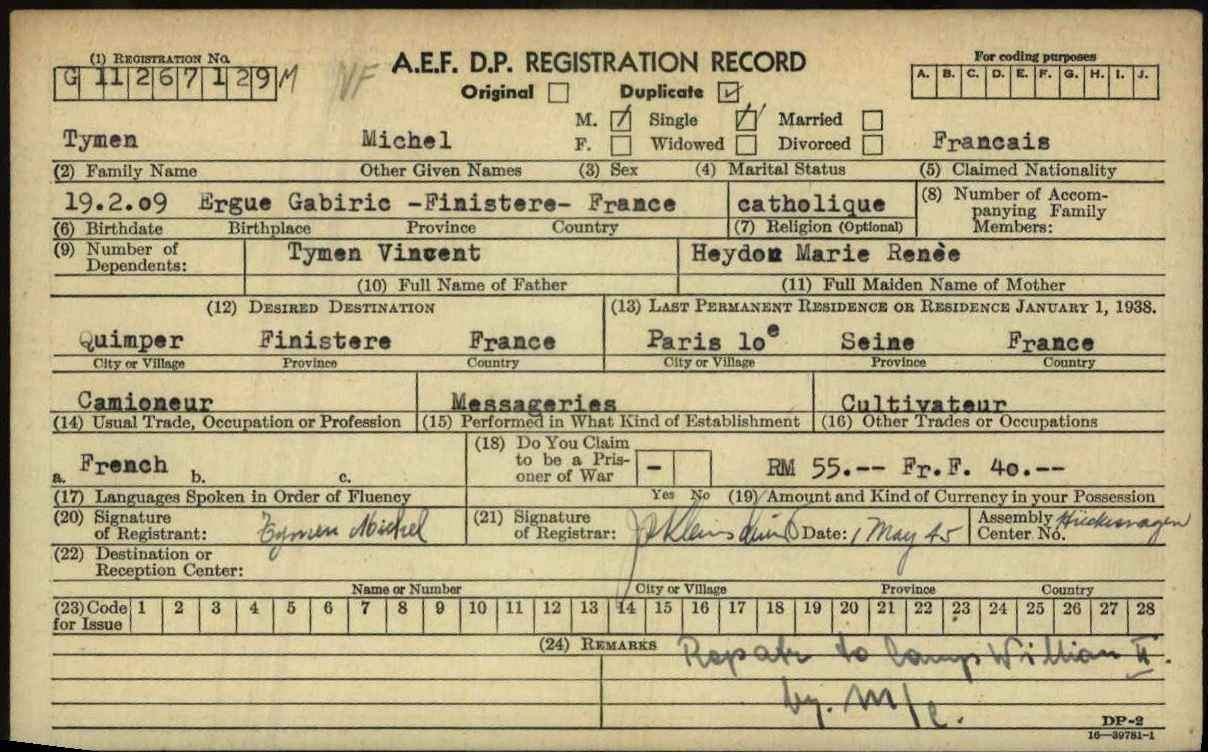 (1) Registration No.
G 11267129 M NF
A.E.F. D.P. REGISTRATION RECORD
For coding purposes
A. B. C. D. E. F. G. H. I. J.
Original Duplicate
M. Single Married
Tymen Michel F. Widowed Divorced Francais
(2) Family Name Other Given Names (3) Sex (4) Marital Status (5) Claimed Nationality
19.2.09 Ergue Gabiric -Finistere- France catholique (8) Number of Accompanying Family Members:
(6) Birthdate Birthplace Province Country (7) Religion (Optional)
(9) Number of Dependents: Tymen Vincent Heydon Marie Renèe
(10) Full Name of Father (11) Full Maiden Name of Mother
(12) Desired Destination (13) Last Permanent Residence or Residence January 1, 1938.
Quimper Finistere France Paris 10e Seine France
City or Village Province Country City or Village Province Country
Camioneur Messageries Cultivateur
(14) Usual Trade, Occupation or Profession (15) Performed in What Kind of Establishment (16) Other Trades or Occupations
French (18) Do You Claim to be a Prisoner of War - RM 55.-- Fr.F. 40.--
a. b. c.
(17) Languages Spoken in Order of Fluency Yes No (19) Amount and Kind of Currency in your Possession
(20) Signature of Registrant: Tymen Michel (21) Signature of Registrar: Date: 1 May 45 Assembly Center No. Hückeswagen
(22) Destination or Reception Center:
Name or Number City or Village Province Country
(23) Code for Issue 1 2 3 4 5 6 7 8 9 10 11 12 13 14 15 16 17 18 19 20 21 22 23 24 25 26 27 28
(24) Remarks Repatr to Camp Willian II.
by. M/c.
DP-2
16—39781-1